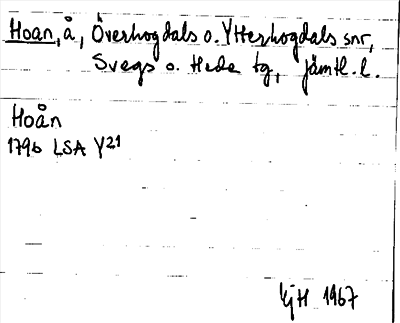 Hoan, å, Överhogdals o. Ytterhogdals snr,
Svegs o. Hede tg, Jämtl. l.
Hoån
1796 LSA Y21
KjH 1967